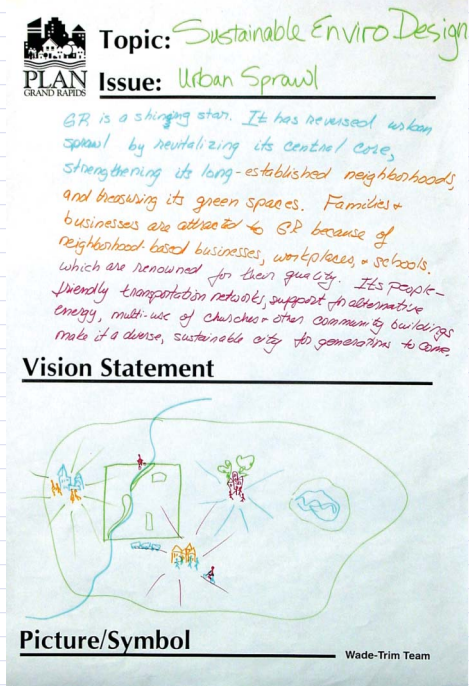 Topic: Sustainable Enviro Design
PLAN
GRAND RAPIDS
Issue: Urban Sprawl
GR is a shinging star. It has reversed urban
sprawl by revitalizing its central core,
strengthening its long-established neighborhoods,
and treasuring its green spaces. Families +
businesses are attracted to GR because of
neighborhood-based businesses, workplaces, + schools.
which are renowned for their quality. Its people-
friendly transportation networks, support for alternative
energy, multi-use of churches + other community buildings
make it a diverse, sustainable city for generations to come.
Vision Statement
Picture/Symbol
Wade-Trim Team